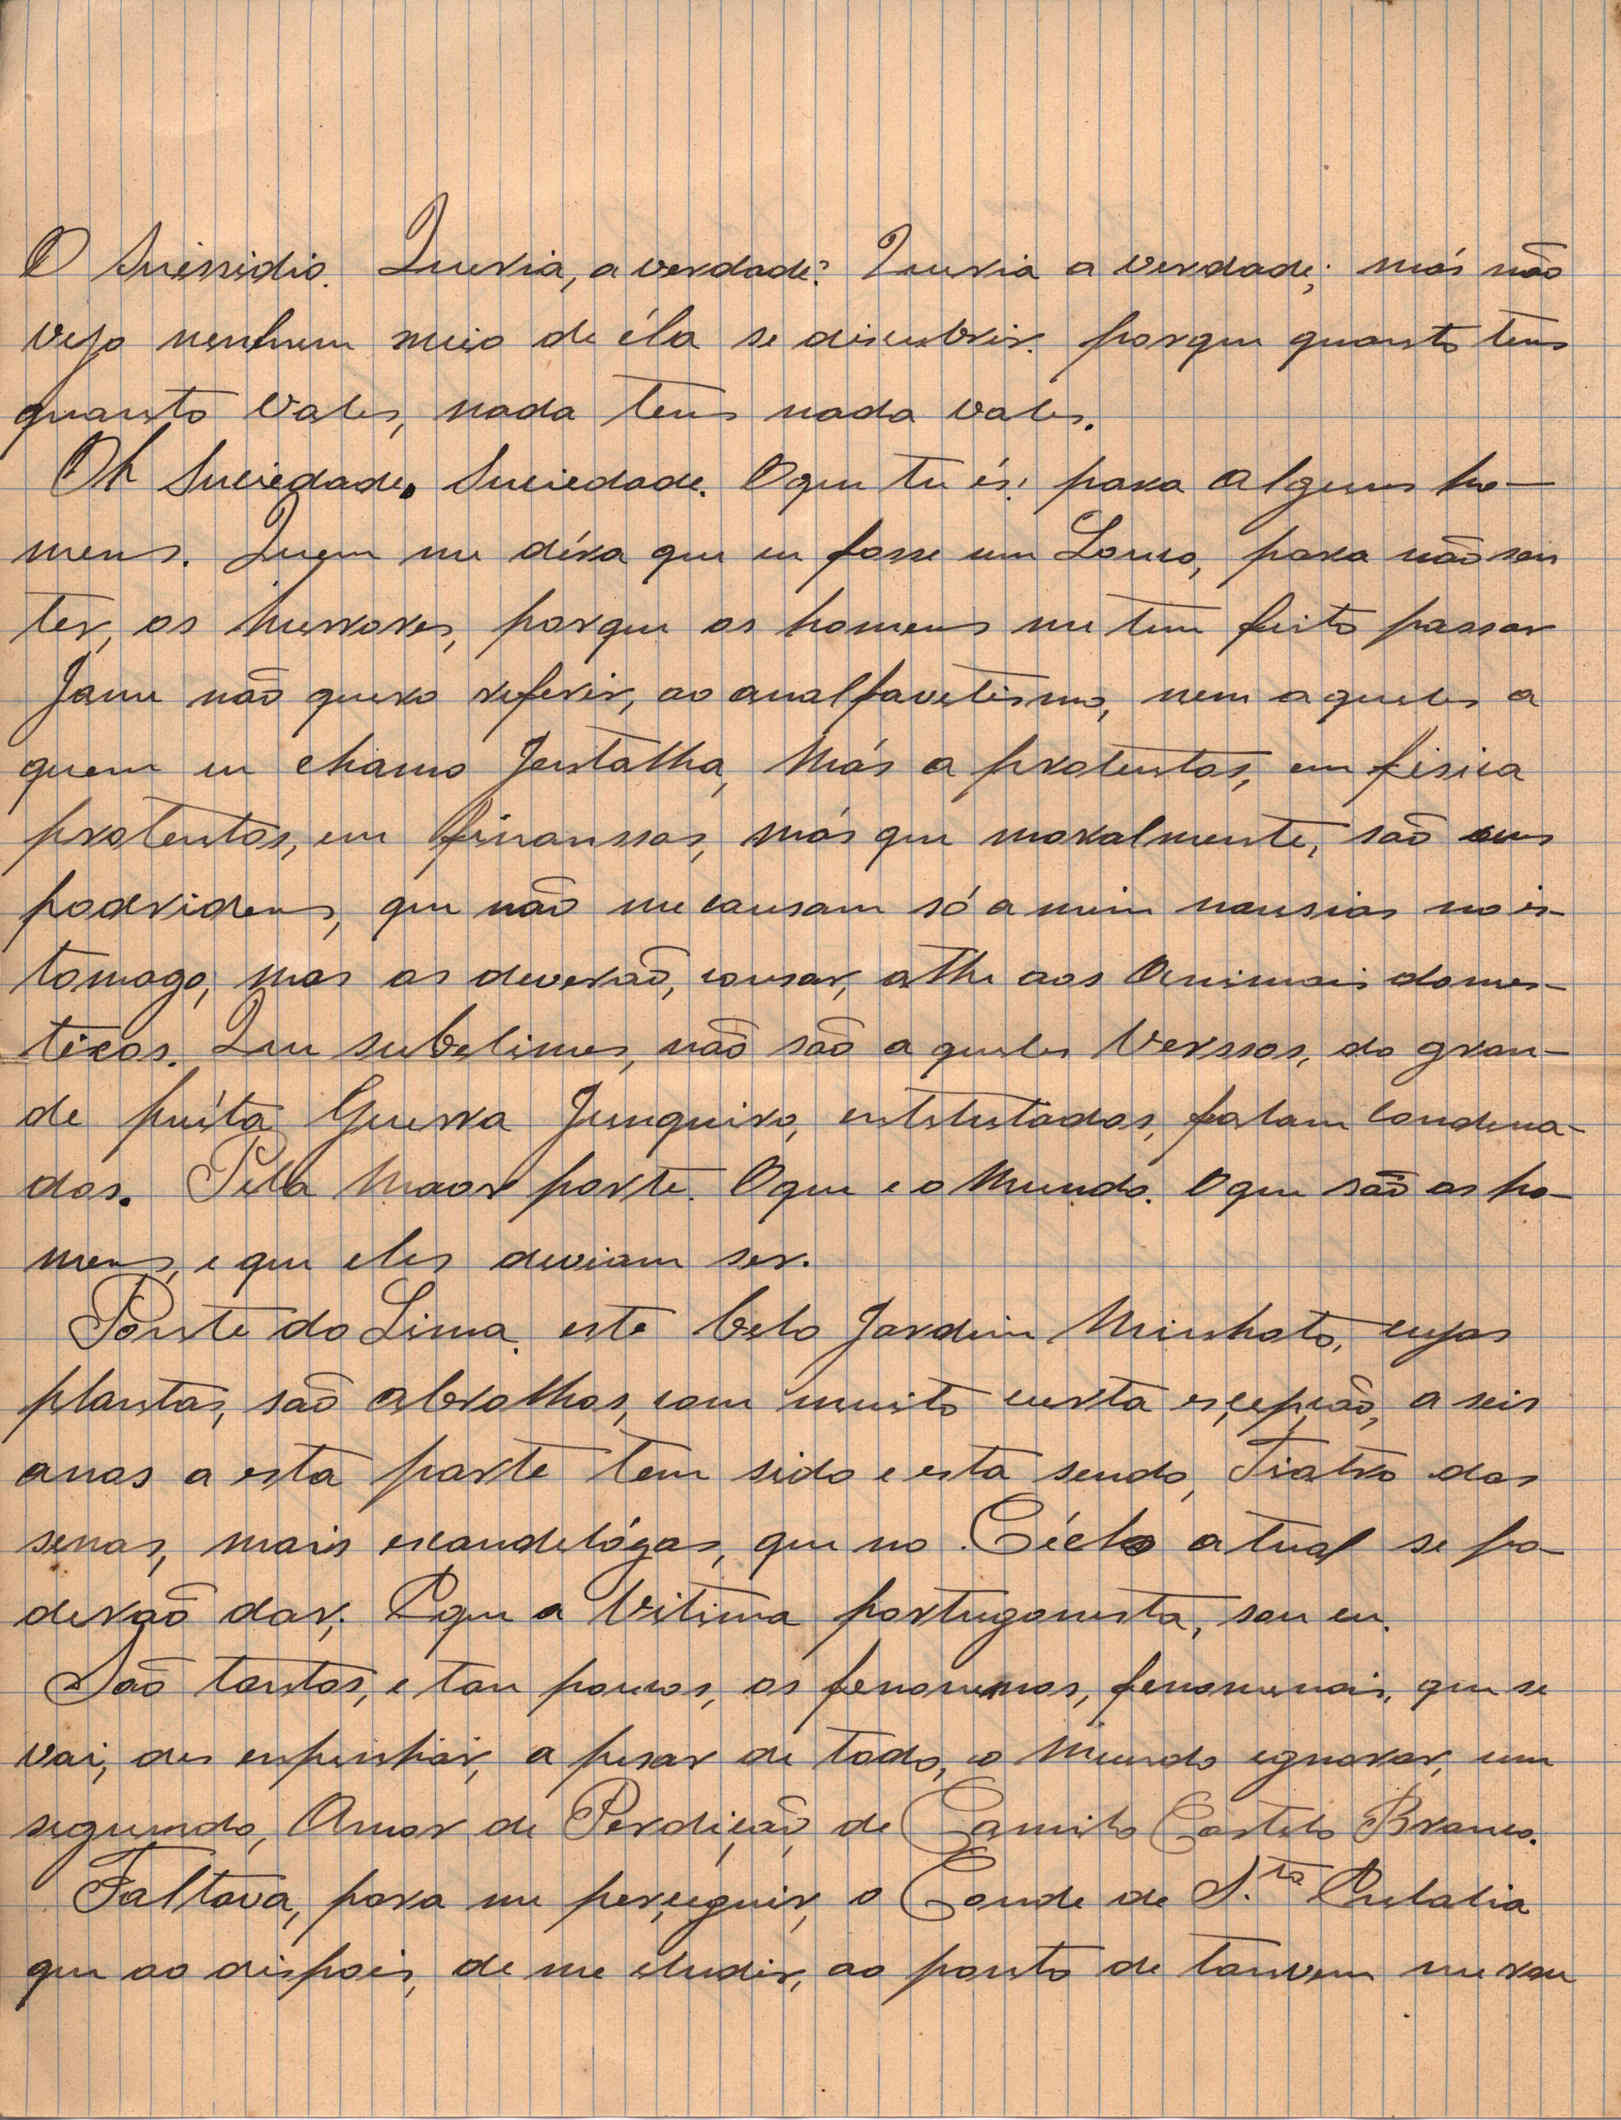 O Suissidio. Queria, a verdade? Queria a verdade; más não
vejo nenhum meio de éla se discubrir. porque quanto tens
quanto vales, nada tens nada vales.
Oh Suciedade, Suciedade. Oque tu és! para alguns ho-
mens. Quem me déra que eu fosse um Louco, para não sen
ter, os hurrores, porque os homens me tem feito passar
Jame não quero referir, ao analfavetismo, nem aqueles a
quem eu chamo Jentalha, Más a protentos, em fisica
protentos, em finanssas, más que moralmente, são uns
podridens, que não me causam só a mim nausias no is-
tomago, mas as deverão, causar, athe aos Animais domes-
ticos. Que subelimes, não são aqueles Verssos, do gran-
de puíta Guerra Junqueiro, entetutados, falam Condena-
dos. Pela Maor parte. Oque e o Mundo. Oque são os ho-
mens, e que eles deviam ser.
Ponte do Lima. este belo Jardim Minhoto, cujas
plantas, são abrolhos, com muito curta esçepção, a seis
anos a esta parte tem sido e esta sendo, Tiatro das
senas, mais escandelógas, que no Céclo atual se po-
derão dar. E que a Vitima portugonista, sou eu.
São tantos, e tan poucos, os fenomenos, fenomenais, que se
vai, des enpenhar, a pesar de todo, o Mundo egnorar, um
segundo, Amor de Perdição, de Camilo Castelo Branco.
Faltava, para me perçeguir, o Conde de S.ta Eulalia
que ao dispois, de me eludir, ao ponto de tanvem me rou